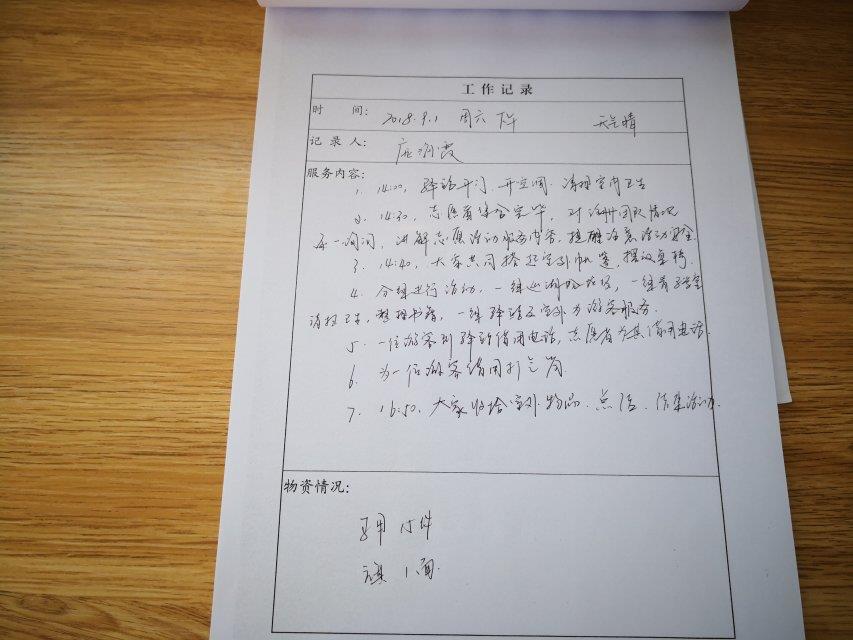 工作记录
时 间: 2018.9.1 周六 下午 天气晴
记录人:
服务内容:
1. 14:00, 驿站开门、开空调、清理室内卫生
2. 14:30, 志愿者集合完毕, 对注册团队情况
逐一询问, 讲解志愿活动服务内容, 提醒注意活动安全.
3. 14:40, 大家共同搭起室外帐篷, 摆设桌椅.
4. 分组进行活动, 一组巡湖捡垃圾, 一组着手室
清扫卫生, 整理书籍, 一组驿站及室外为游客服务.
5. 一位游客到驿站借用电话, 志愿者为其借用电话.
6. 为一位游客借用打气筒
7. 16:50, 大家收拾室外物品, 点评, 结束活动.
物资情况:
马甲 15件
旗 1面.